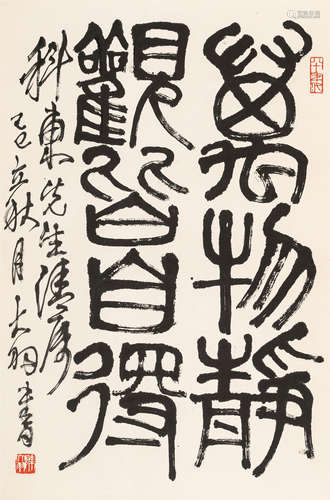 萬物靜
觀皆自得
科東先生清屬
立秋月大羽